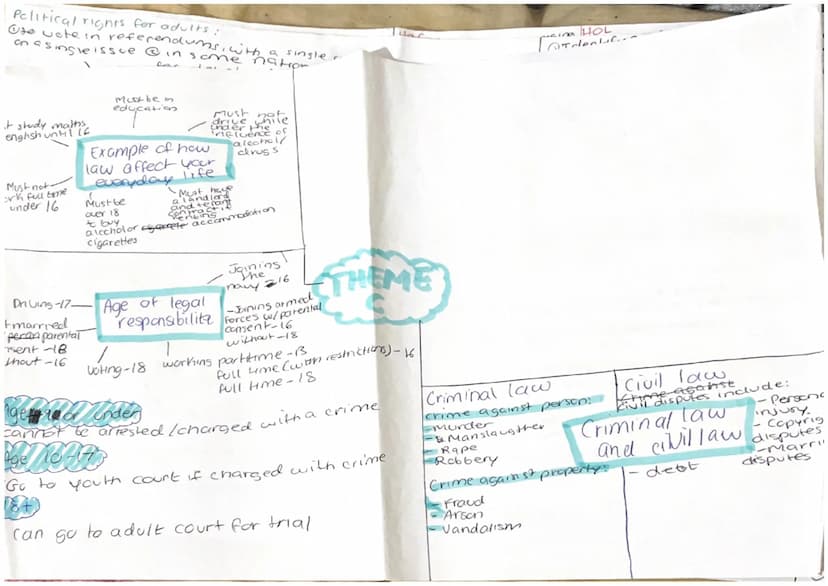 Political rights for adults:
① to vote in referendums, with a single
on a single issue ② in some nation
HOL
Must be in
education
t study maths
english until 16
Must not
drive while
under the
influence of
alcohol/
drugs
Example of how
law affect your
everyday life
Must not
rk full time
under 16
Must be
over 18
to buy
alcohol or
cigarettes
Must have
a landlord
and tenant
contract if
renting
accommodation
Joining
the
navy - 16
Driving -17
Age of legal
responsibility
- Joining armed
forces w/parental
consent -16
without -18
t married
parental
sent - 18
hout - 16
Voting -18
working part time - 13
full time (with restrictions) - 16
full time - 18
THEME
C
or under
cannot be arrested/charged with a crime
Age 10-17
Go to youth court if charged with crime
18+
can go to adult court for trial
Criminal law
crime against person:
- Murder
- Manslaughter
- Rape
- Robbery
Crime against property:
- Fraud
- Arson
- Vandalism
Criminal law
and civil law
Civil law
crime against
civil disputes include:
- Persona
injury
- Copyrig
disputes
- Marri
disputes
- debt